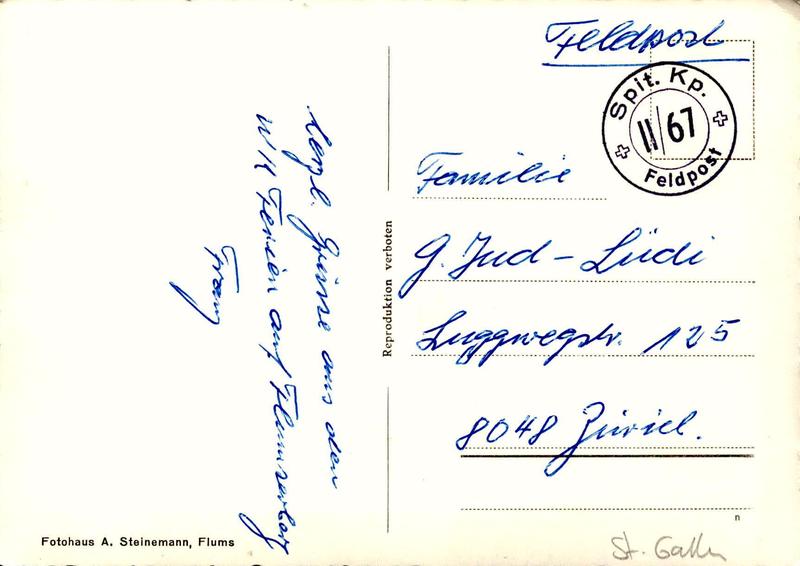 Feldpost
Spit. Kp.
II/67
Feldpost
Herzl. Grüsse aus den
WK Ferien auf Flumserberg
Franz
Reproduktion verboten
Familie
G. Jud - Lüdi
Luggwegstr. 125
8048 Zürich.
n
Fotohaus A. Steinemann, Flums
St. Gallen